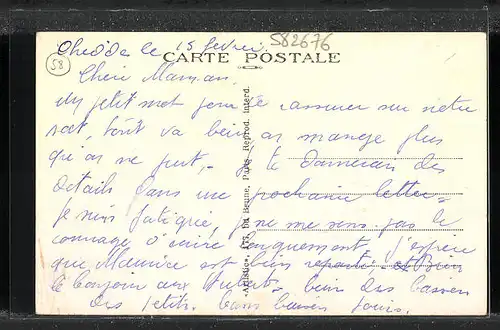 Chedde le 15 février.
582676
CARTE POSTALE
58
Cher Maman.
un petit mot pour te rassurer sur notre
sort, tout va bien, on mange plus
qu'on ne peut, je te donnerais des
détails dans une prochaine lettre
Je suis fatigué, je ne me sens pas le
courage d'écrire longuement, j'espère
que Maurice est bien reparti et Bien
le bonjour aux bien des baisers
des petits. Bons baisers Louis.
"Artistic", 173, Bd Brune, Paris. Reprod. Interd.